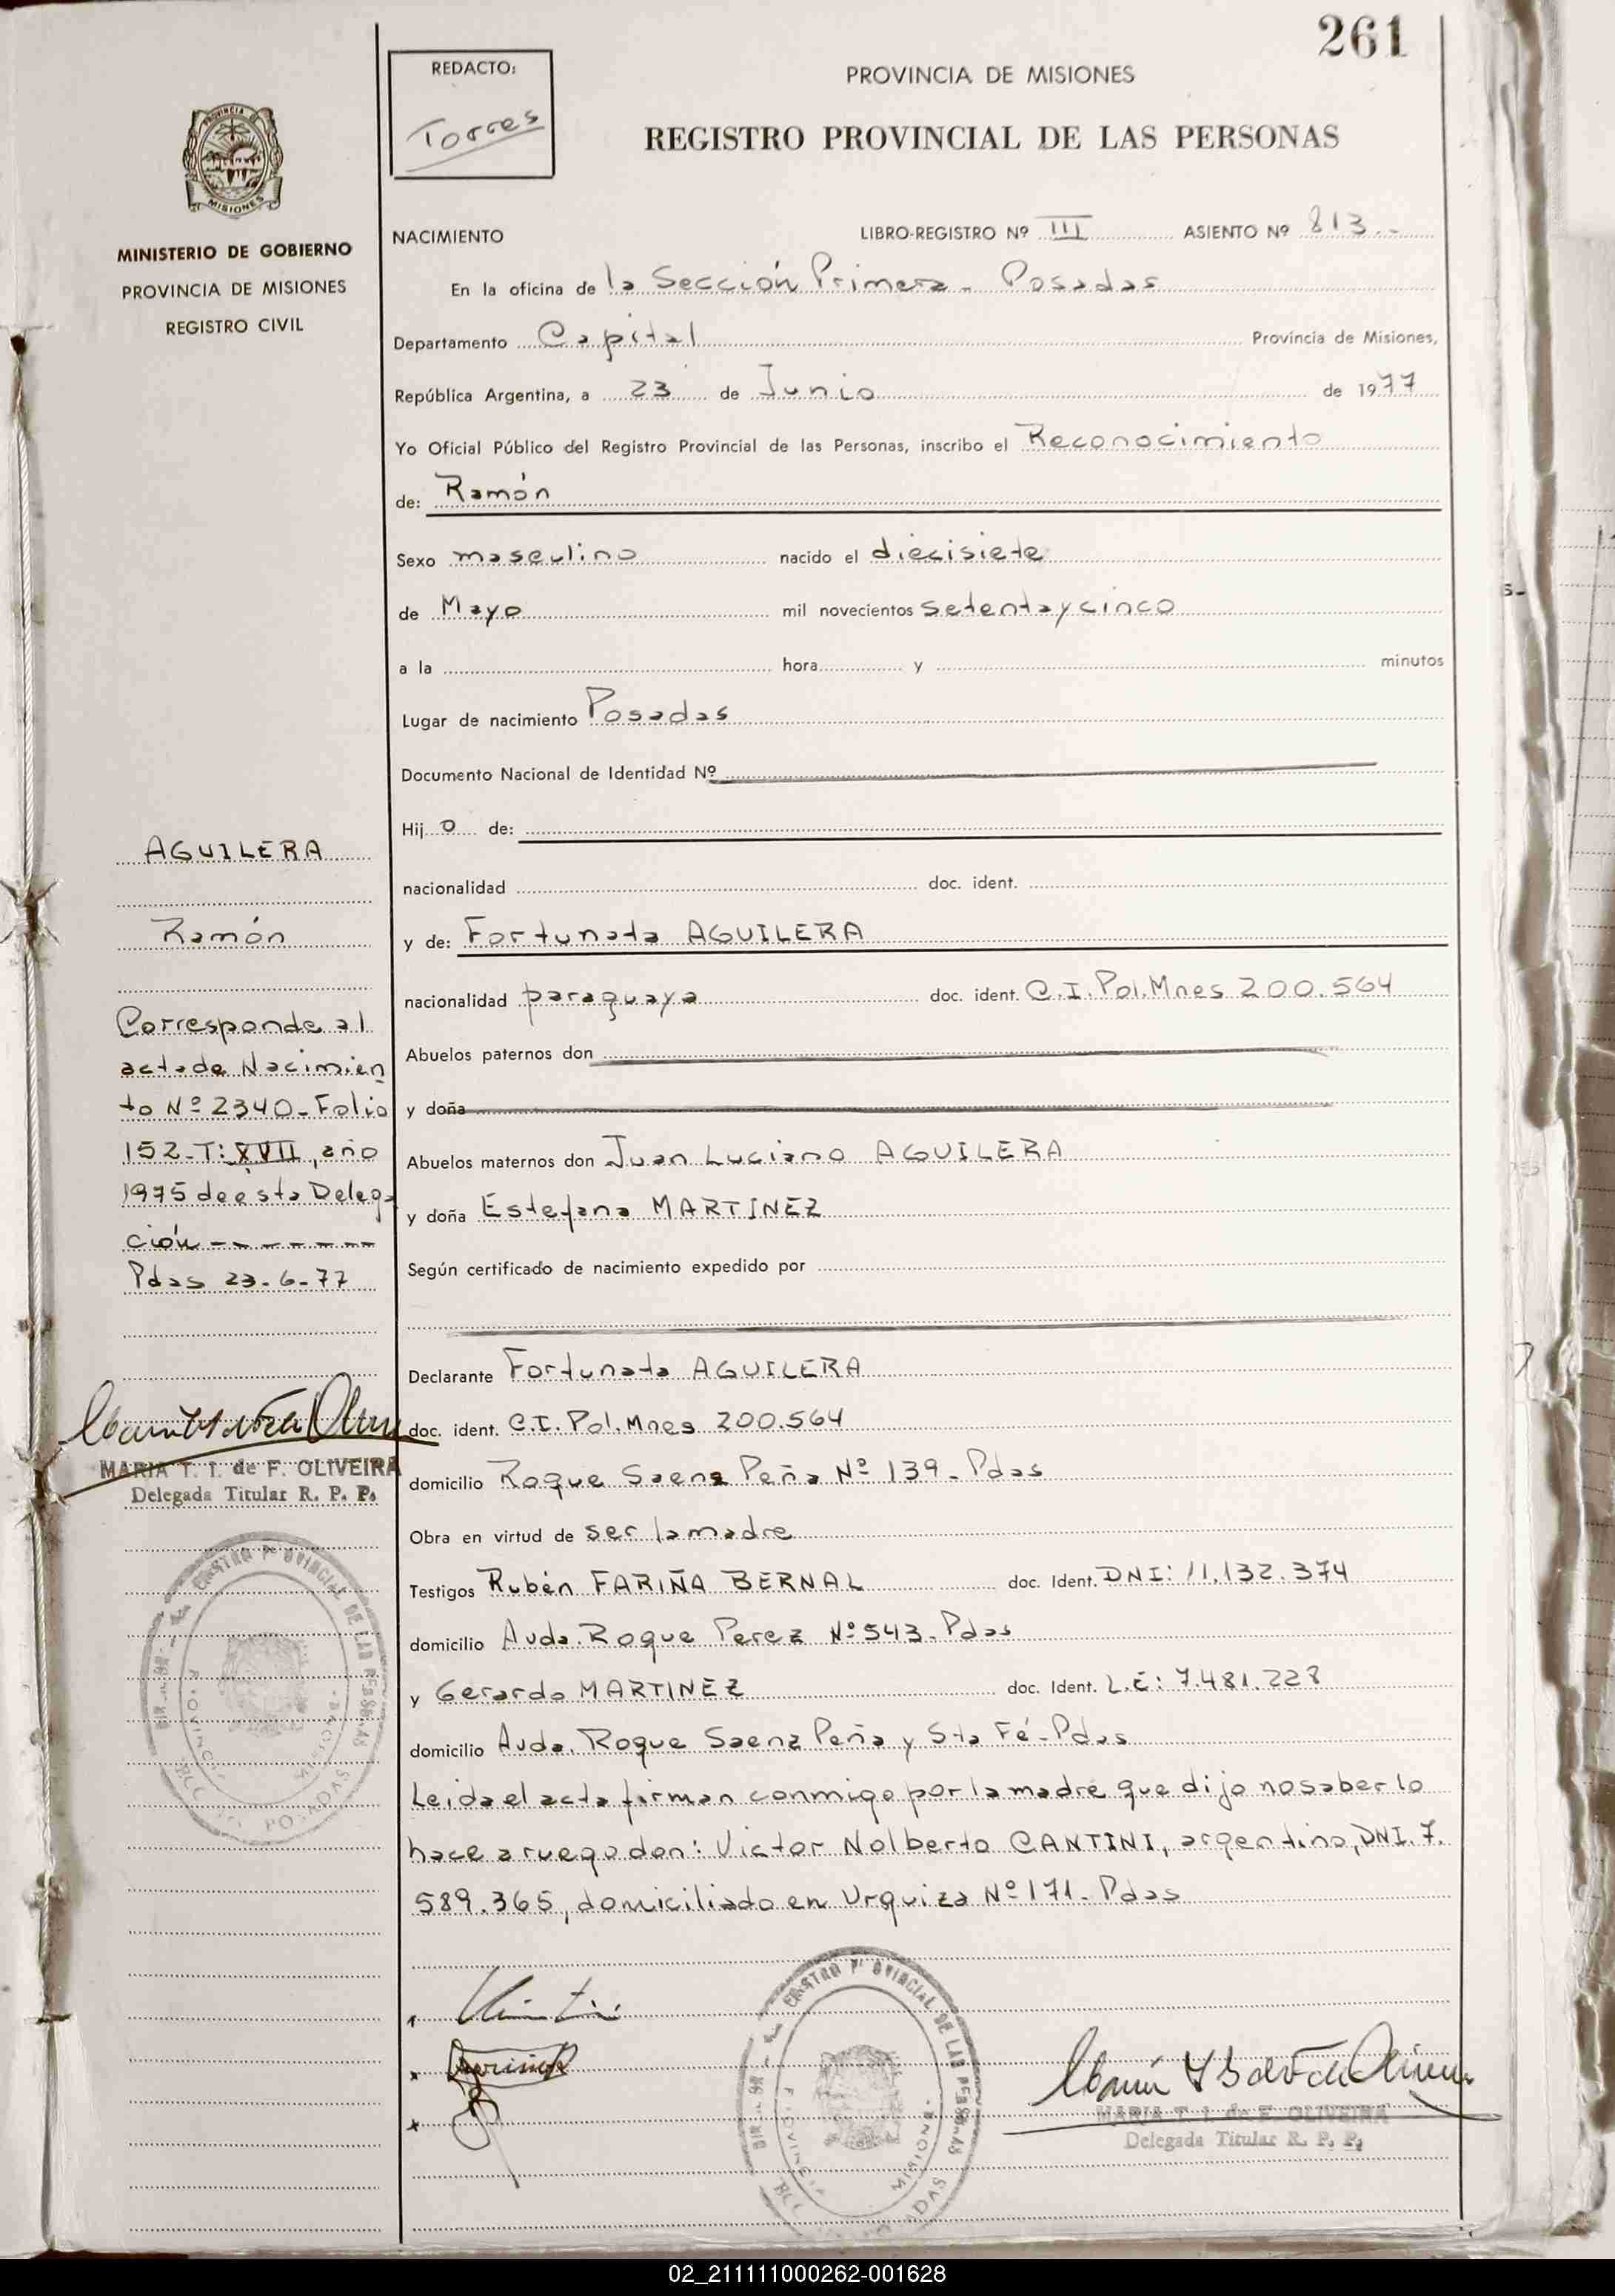 261
REDACTO:
Torres
PROVINCIA DE MISIONES
REGISTRO PROVINCIAL DE LAS PERSONAS
PROVINCIA DE
MISIONES
MINISTERIO DE GOBIERNO
PROVINCIA DE MISIONES
REGISTRO CIVIL
NACIMIENTO LIBRO-REGISTRO Nº III ASIENTO Nº 813.-
En la oficina de la Sección Primera - Posadas
Departamento Capital Provincia de Misiones,
República Argentina, a 23 de Junio de 1977
Yo Oficial Público del Registro Provincial de las Personas, inscribo el Reconocimiento
de: Ramón
Sexo masculino nacido el diecisiete
de Mayo mil novecientos setenta y cinco
a la hora y minutos
Lugar de nacimiento Posadas
Documento Nacional de Identidad Nº
Hij o de:
nacionalidad doc. ident.
y de: Fortunata AGUILERA
nacionalidad paraguaya doc. ident. C.I. Pol. Mnes 200.564
Abuelos paternos don
y doña
Abuelos maternos don Juan Luciano AGUILERA
y doña Estefana MARTINEZ
Según certificado de nacimiento expedido por
Declarante Fortunata AGUILERA
doc. ident. C.I. Pol. Mnes 200.564
domicilio Roque Saens Peña Nº 139 - Pdas
Obra en virtud de ser la madre
Testigos Rubén FARIÑA BERNAL doc. Ident. DNI: 11.132.374
domicilio Avda. Roque Perez Nº 543 - Pdas
y Gerardo MARTINEZ doc. Ident. L.E: 7.481.228
domicilio Avda. Roque Saenz Peña y Sta Fé - Pdas
Leida el acta firman conmigo por la madre que dijo no saberlo
hace a ruego don: Victor Nolberto CANTINI, argentino, DNI. 7.
589.365, domiciliado en Urquiza Nº 171 - Pdas
AGUILERA
Ramón
Corresponde al
acta de Nacimien
to Nº 2340 - Folio
152 - T: XVII, año
1975 de esta Delega
ción -------
Pdas 23-6-77
MARIA T. I. de F. OLIVEIRA
Delegada Titular R. P. P.
PROVINCIAL DE LAS PERSONAS
POSADAS
PROVINCIAL DE LAS PERSONAS
MISIONES
MARIA T. I. de F. OLIVEIRA
Delegada Titular R. P. P.
02_211111000262-001628